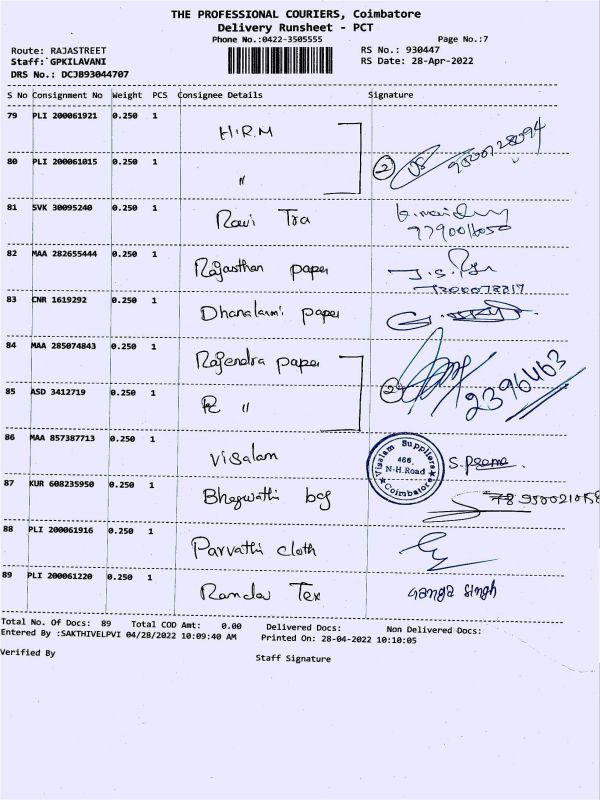 THE PROFESSIONAL COURIERS, Coimbatore
Delivery Runsheet - PCT
Phone No.:0422-3505555
Page No.:7
Route: RAJASTREET
RS No.: 930447
Staff: GPKILAVANI
RS Date: 28-Apr-2022
DRS No.: DCJB93044707
S No Consignment No Weight PCS Consignee Details Signature
79 PLI 200061921 0.250 1 H.R.M
80 PLI 200061015 0.250 1 〃 2
81 SVK 30095240 0.250 1 Ravi Tra
82 MAA 282655444 0.250 1 Rajasthan paper
83 CNR 1619292 0.250 1 Dhanalaxmi paper
84 MAA 285074843 0.250 1 Rajendra paper
85 ASD 3412719 0.250 1 〃 2 2396463
86 MAA 857387713 0.250 1 Visalam
Visalam Suppliers
466,
N-H.Road
Coimbatore
87 KUR 608235950 0.250 1 Bhagwathi bag
88 PLI 200061916 0.250 1 Parvathi cloth
89 PLI 200061220 0.250 1 Tex Ganga Singh
Total No. Of Docs: 89 Total COD Amt: 0.00 Delivered Docs: Non Delivered Docs:
Entered By :SAKTHIVELPVI 04/28/2022 10:09:40 AM Printed On: 28-04-2022 10:10:05
Verified By
Staff Signature